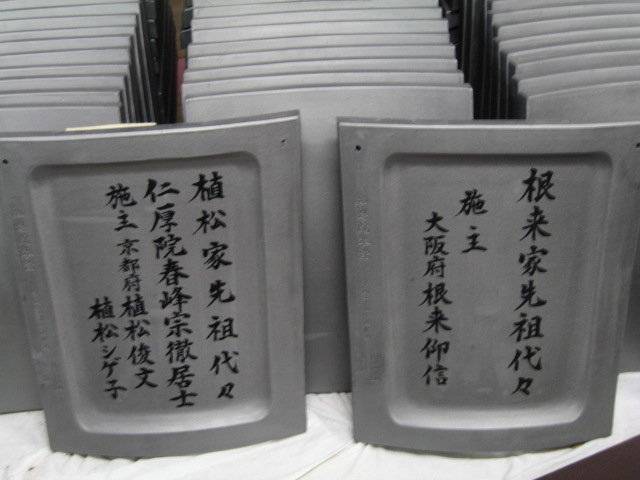 植松家先祖代々
仁厚院春峰宗徹居士
施主 京都府 植松俊文
植松シゲ子
根来家先祖代々
施主
大阪府 根来仰信